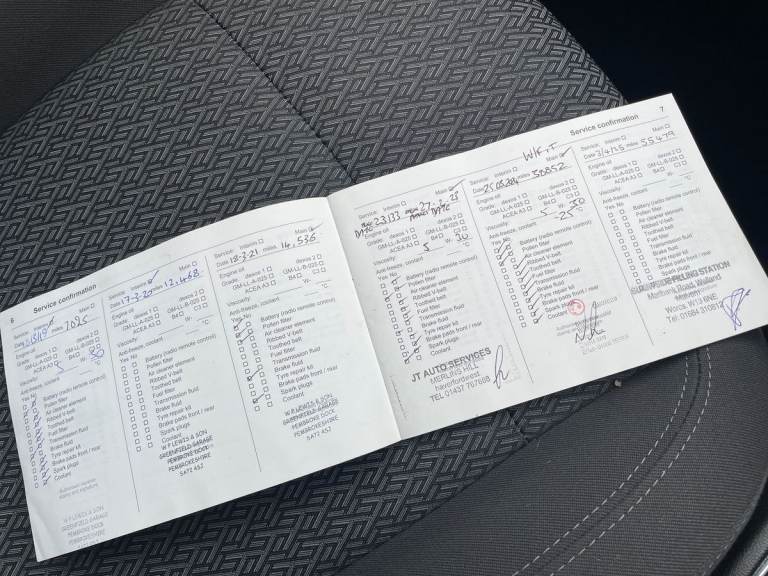 6 Service confirmation
Service: Interim Main
Date miles 7025
Engine oil
Grade: dexos 1 dexos 2
GM-LL-A-025 GM-LL-B-025
ACEA A3 B4 C3
Viscosity: 5 30
Anti-freeze, coolant
Yes No
Battery (radio remote control)
Pollen filter
Air cleaner element
Ribbed V-belt
Toothed belt
Fuel filter
Transmission fluid
Brake fluid
Tyre repair kit
Brake pads front / rear
Spark plugs
Coolant
Authorised repairer
stamp and signature
W P LEWIS & SON
GREENFIELD GARAGE
PEMBROKE DOCK
PEMBROKESHIRE
SA72
Service: Interim Main
Date 17-3-20 miles 12,468
Engine oil
Grade: dexos 1 dexos 2
GM-LL-A-025 GM-LL-B-025
ACEA A3 B4 C3
Viscosity: W-
Anti-freeze, coolant
Yes No
Battery (radio remote control)
Pollen filter
Air cleaner element
Ribbed V-belt
Toothed belt
Fuel filter
Transmission fluid
Brake fluid
Tyre repair kit
Brake pads front / rear
Spark plugs
Coolant
W P LEWIS & SON
GREENFIELD GARAGE
PEMBROKE DOCK
PEMBROKESHIRE
SA72 4SZ
Service: Interim Main
Date 18-3-21 miles 14,536
Engine oil
Grade: dexos 1 dexos 2
GM-LL-A-025 GM-LL-B-025
ACEA A3 B4 C3
Viscosity: W-
Anti-freeze, coolant
Yes No
Battery (radio remote control)
Pollen filter
Air cleaner element
Ribbed V-belt
Toothed belt
Fuel filter
Transmission fluid
Brake fluid
Tyre repair kit
Brake pads front / rear
Spark plugs
Coolant
W P LEWIS & SON
GREENFIELD GARAGE
PEMBROKE DOCK
PEMBROKESHIRE
SA72 4SZ
Service confirmation 7
Service: Interim Main
23133
Engine oil
Grade: dexos 1 dexos 2
GM-LL-A-025 GM-LL-B-025
ACEA A3 B4 C3
Viscosity: 5 W- 30
Anti-freeze, coolant
Yes No
Battery (radio remote control)
Pollen filter
Air cleaner element
Ribbed V-belt
Toothed belt
Fuel filter
Transmission fluid
Brake fluid
Tyre repair kit
Brake pads front / rear
Spark plugs
Coolant
JT AUTO SERVICES
MERLINS HILL
haverfordwest
TEL 01437 767698
Service: Interim Main
miles 30852
Engine oil
Grade: dexos 1 dexos 2
GM-LL-A-025 GM-LL-B-025
ACEA A3 B4 C3
Viscosity: 5 W- 30
Anti-freeze, coolant -25 °C
Yes No
Battery (radio remote control)
Pollen filter
Air cleaner element
Ribbed V-belt
Toothed belt
Fuel filter
Transmission fluid
Brake fluid
Tyre repair kit
Brake pads front / rear
Spark plugs
Service: Interim Main
Date 3/4/25 miles 55479
Engine oil
Grade: dexos 1 dexos 2
GM-LL-A-025 GM-LL-B-025
ACEA A3 B4 C3
Viscosity: W-
Anti-freeze, coolant °C
Yes No
Battery (radio remote control)
Pollen filter
Air cleaner element
Ribbed V-belt
Toothed belt
Fuel filter
Transmission fluid
Brake fluid
Tyre repair kit
Brake pads front / rear
Spark plugs
STATION